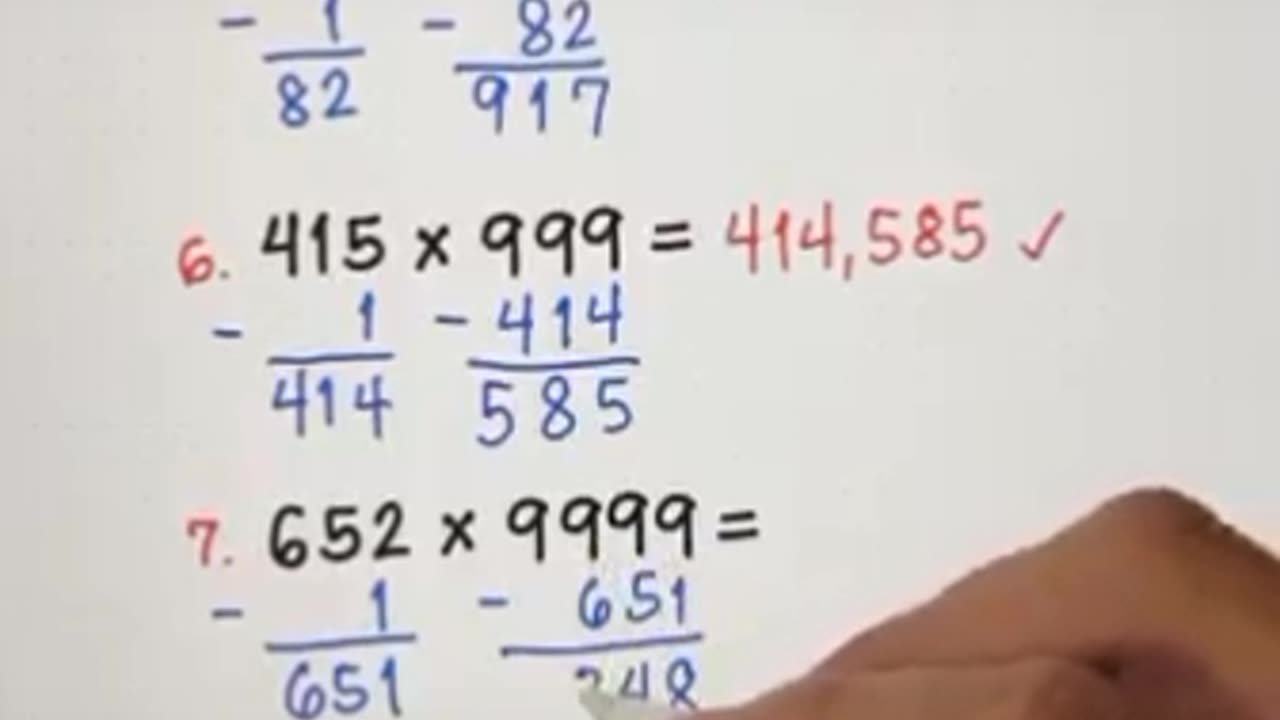 - 1 - 82
82 917
6. 415 x 999 = 414,585 ✓
- 1 - 414
414 585
7. 652 x 9999 =
- 1 - 651
651 348